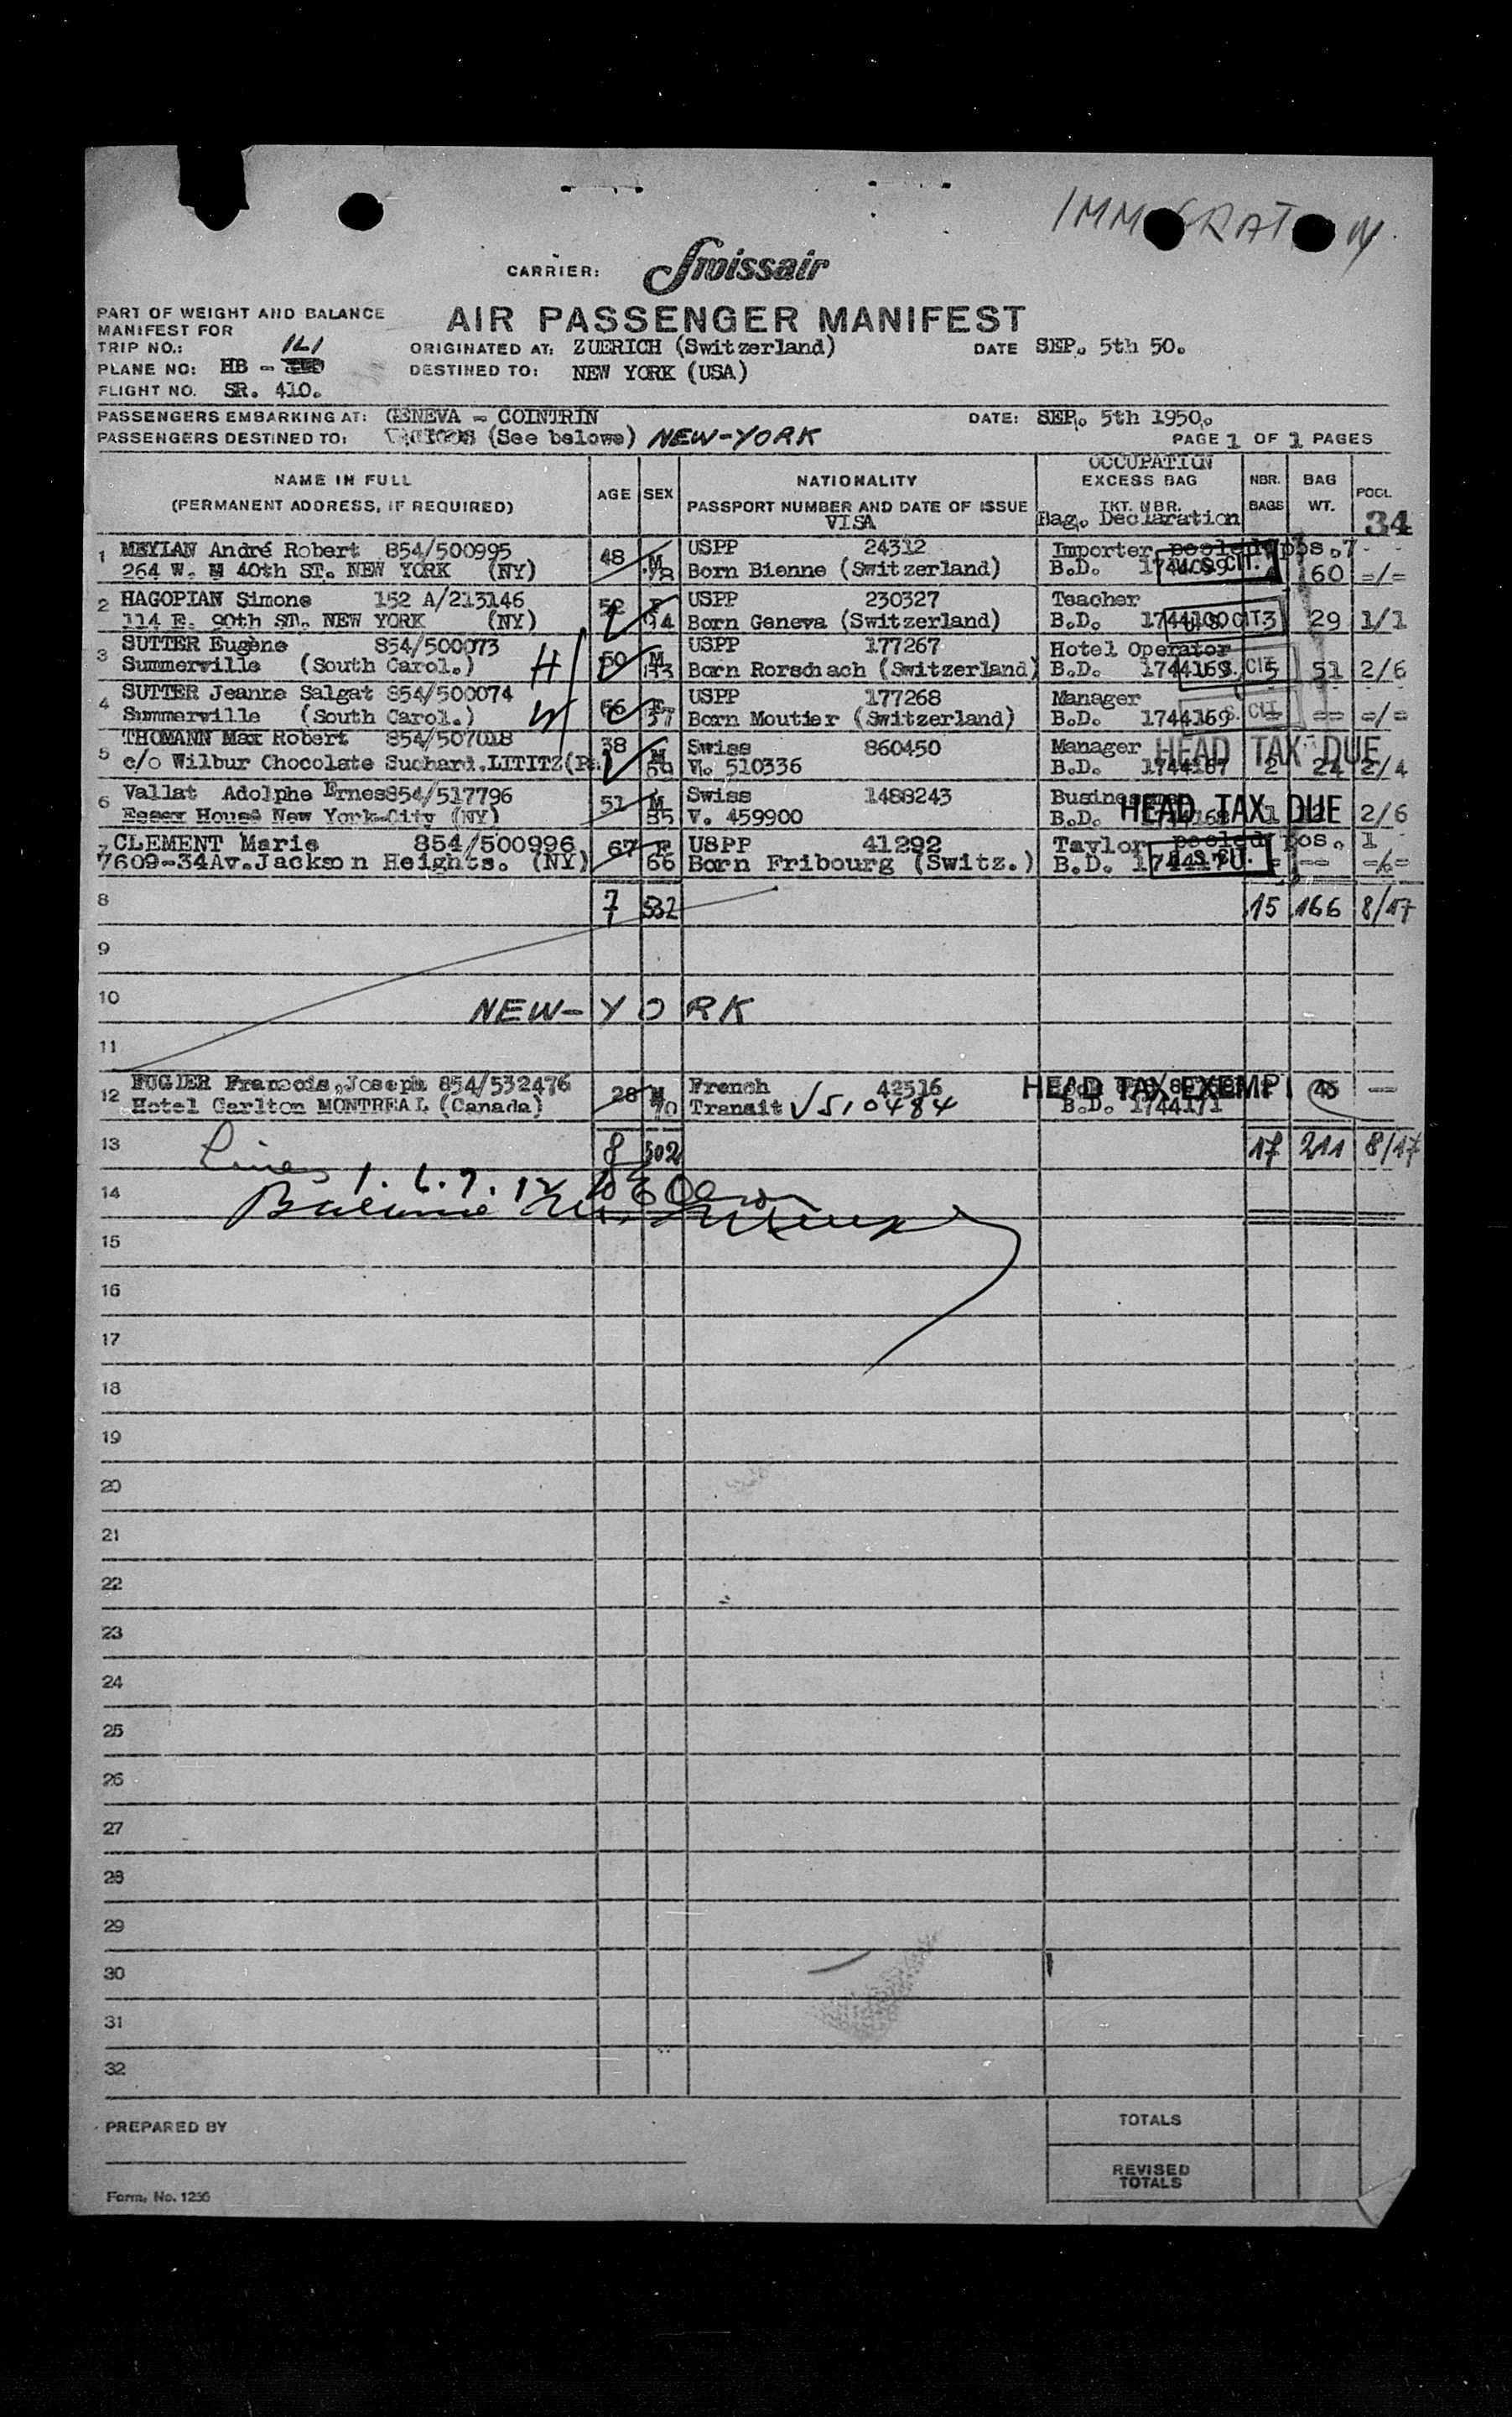 IMMIGRATION
CARRIER: Swissair
PART OF WEIGHT AND BALANCE
MANIFEST FOR
AIR PASSENGER MANIFEST
TRIP NO.:
ORIGINATED AT: ZUERICH (Switzerland) DATE SEP. 5th 50.
PLANE NO: HB - ILI
DESTINED TO: NEW YORK (USA)
FLIGHT NO. SR. 410.
PASSENGERS EMBARKING AT: GENEVA - COINTRIN DATE: SEP. 5th 1950.
PASSENGERS DESTINED TO: (See belowe) NEW-YORK
PAGE 1 OF 1 PAGES
NAME IN FULL
(PERMANENT ADDRESS, IF REQUIRED)
AGE SEX
NATIONALITY
PASSPORT NUMBER AND DATE OF ISSUE
VISA
OCCUPATION
EXCESS BAG
TKT. NBR.
Bag. Declaration
NBR. BAGS
BAG WT.
POOL
34
1 MEYLAN André Robert 854/500995 48 M USPP 24312 Importer pooled pos. 7
264 W. 40th ST. NEW YORK (NY) 78 Born Bienne (Switzerland) B.D. 1744099 U.S. CIT. 60 =/=
2 HAGOPIAN Simone 152 A/213146 52 F USPP 230327 Teacher
114 E. 90th ST. NEW YORK (NY) Born Geneva (Switzerland) B.D. 1744100 3 29 1/1
3 SUTTER Eugène 854/500073 H 50 M USPP 177267 Hotel Operator
Summerville (South Carol.) Born Rorschach (Switzerland) B.D. 1744169 5 51 2/6
4 SUTTER Jeanne Salgat 854/500074 W 56 F USPP 177268 Manager
Summerville (South Carol.) 57 Born Moutier (Switzerland) B.D. 1744169 = == =/=
5 THOMANN Max Robert 854/507018 38 M Swiss 860450 Manager HEAD TAX DUE
c/o Wilbur Chocolate Suchard. LITITZ(Pa.) V. 510336 B.D. 1744167 2 24 2/4
6 Vallat Adolphe Ernes 854/517796 51 M Swiss 1488243 HEAD TAX DUE
Essex House New York-City (NY) 85 V. 459900 B.D. 2/6
7 CLEMENT Marie 854/500996 67 F USPP 41292 Taylor pooled pos. 1
7609-34Av. Jackson Heights. (NY) 66 Born Fribourg (Switz.) B.D. 1744170 = == =/=
8 7 532 15 166 8/17
9
10 NEW-YORK
11
12 FUGIER Francois, Joseph 854/532476 28 M French 42516 HEAD TAX EXEMPT 45 ==
Hotel Carlton MONTREAL (Canada) 70 Transit V510484 B.D. 1744171
13 8 602 17 211 8/17
Lines 1. 6. 7. 12
14 Balance
15
16
17
18
19
20
21
22
23
24
25
26
27
28
29
30
31
32
PREPARED BY
TOTALS
REVISED
TOTALS
Form. No. 1256